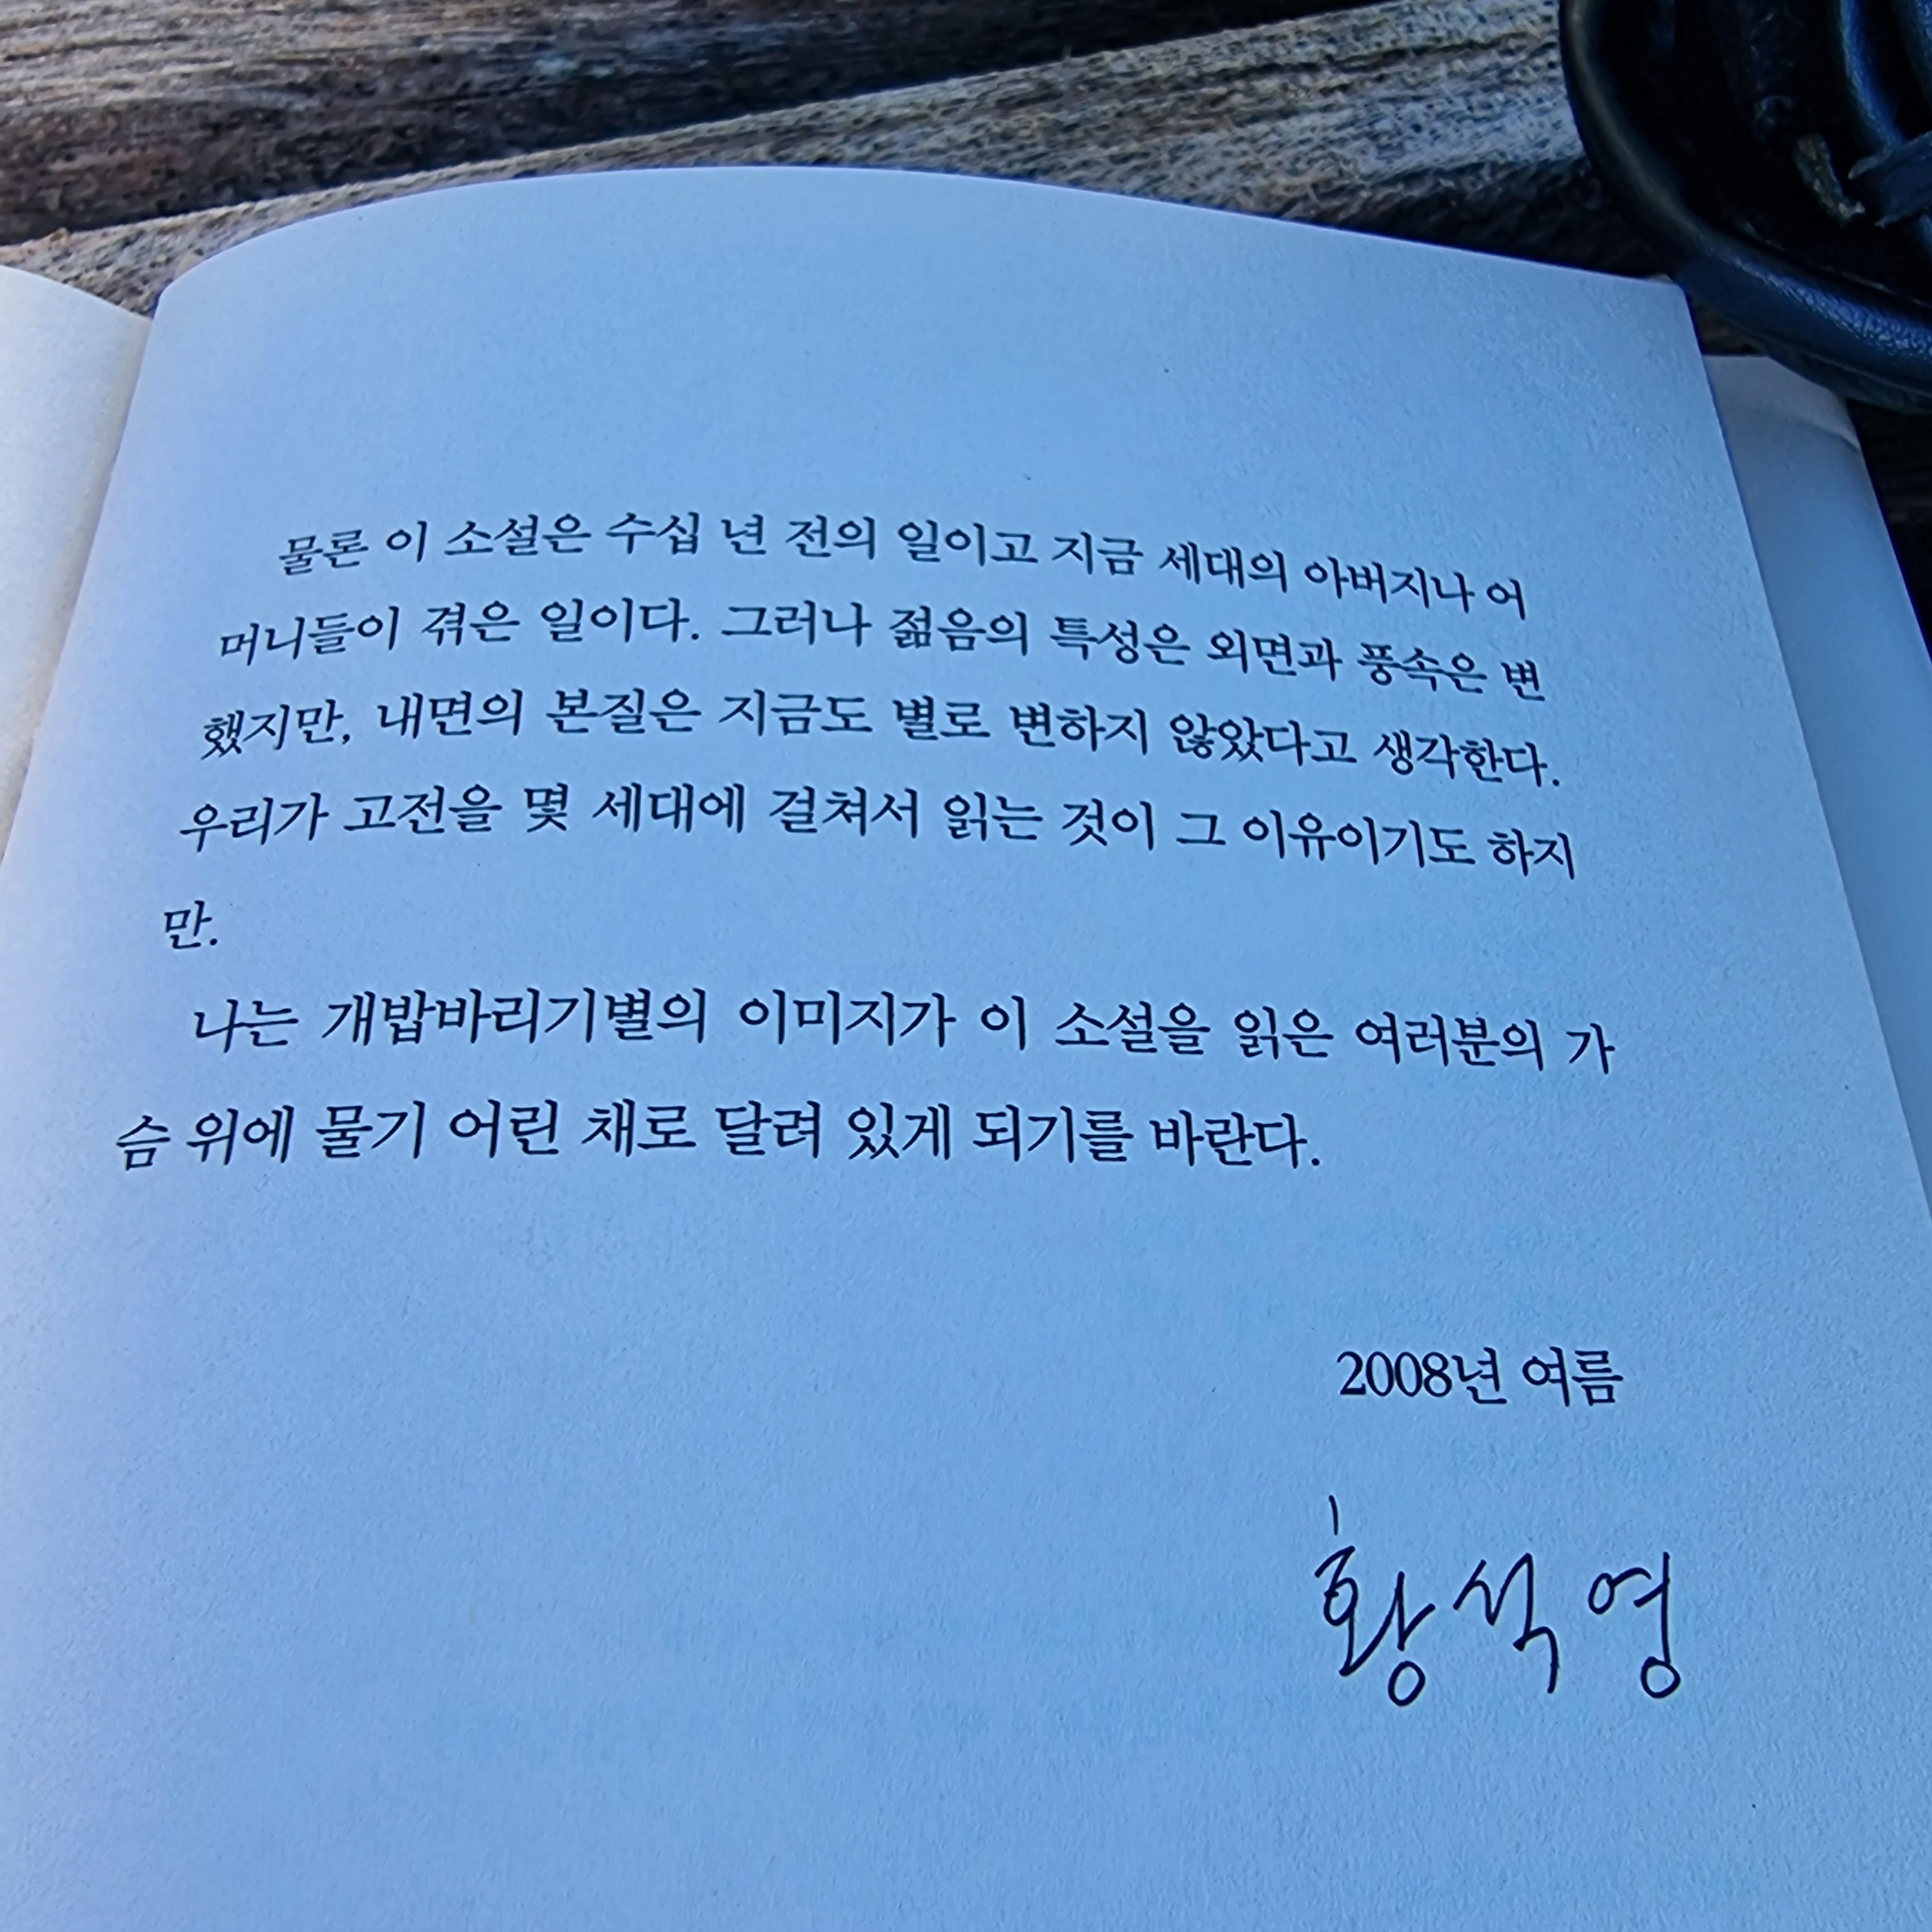 물론 이 소설은 수십 년 전의 일이고 지금 세대의 아버지나 어
머니들이 겪은 일이다. 그러나 젊음의 특성은 외면과 풍속은 변
했지만, 내면의 본질은 지금도 별로 변하지 않았다고 생각한다.
우리가 고전을 몇 세대에 걸쳐서 읽는 것이 그 이유이기도 하지
만.
나는 개밥바라기별의 이미지가 이 소설을 읽은 여러분의 가
슴 위에 물기 어린 채로 달려 있게 되기를 바란다.
2008년 여름
황석영